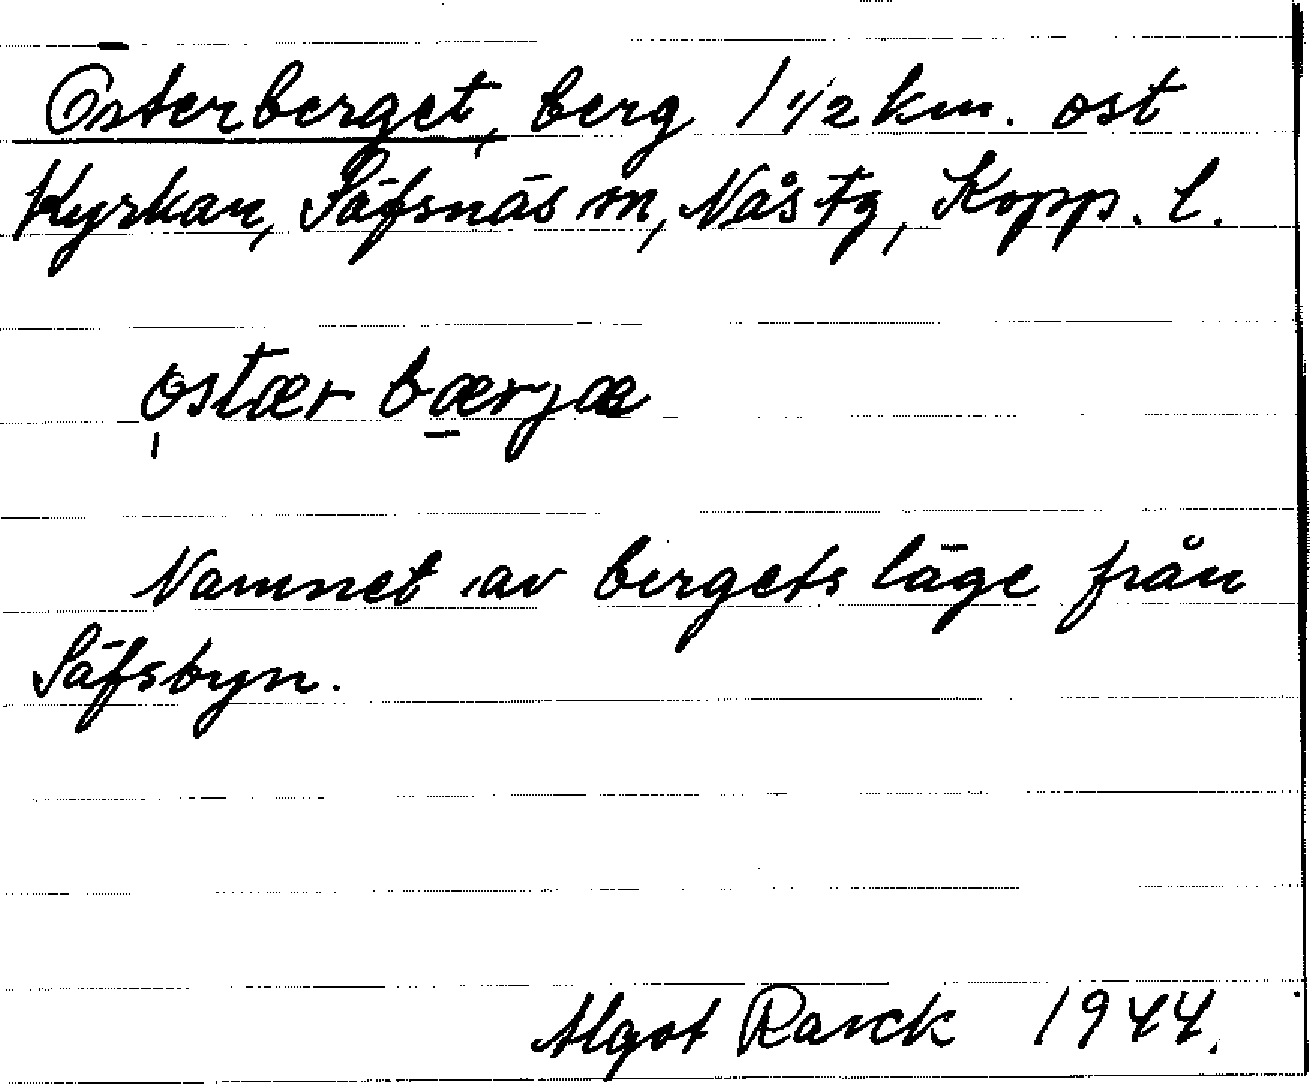 Österberget, berg 1 1/2 km. ost
Kyrkan, Säfsnäs sn, Nås Fg, Kopp. l.
ostær bærjæ
Namnet av bergets läge från
Säfsbyn.
Algot Rasck 1944.